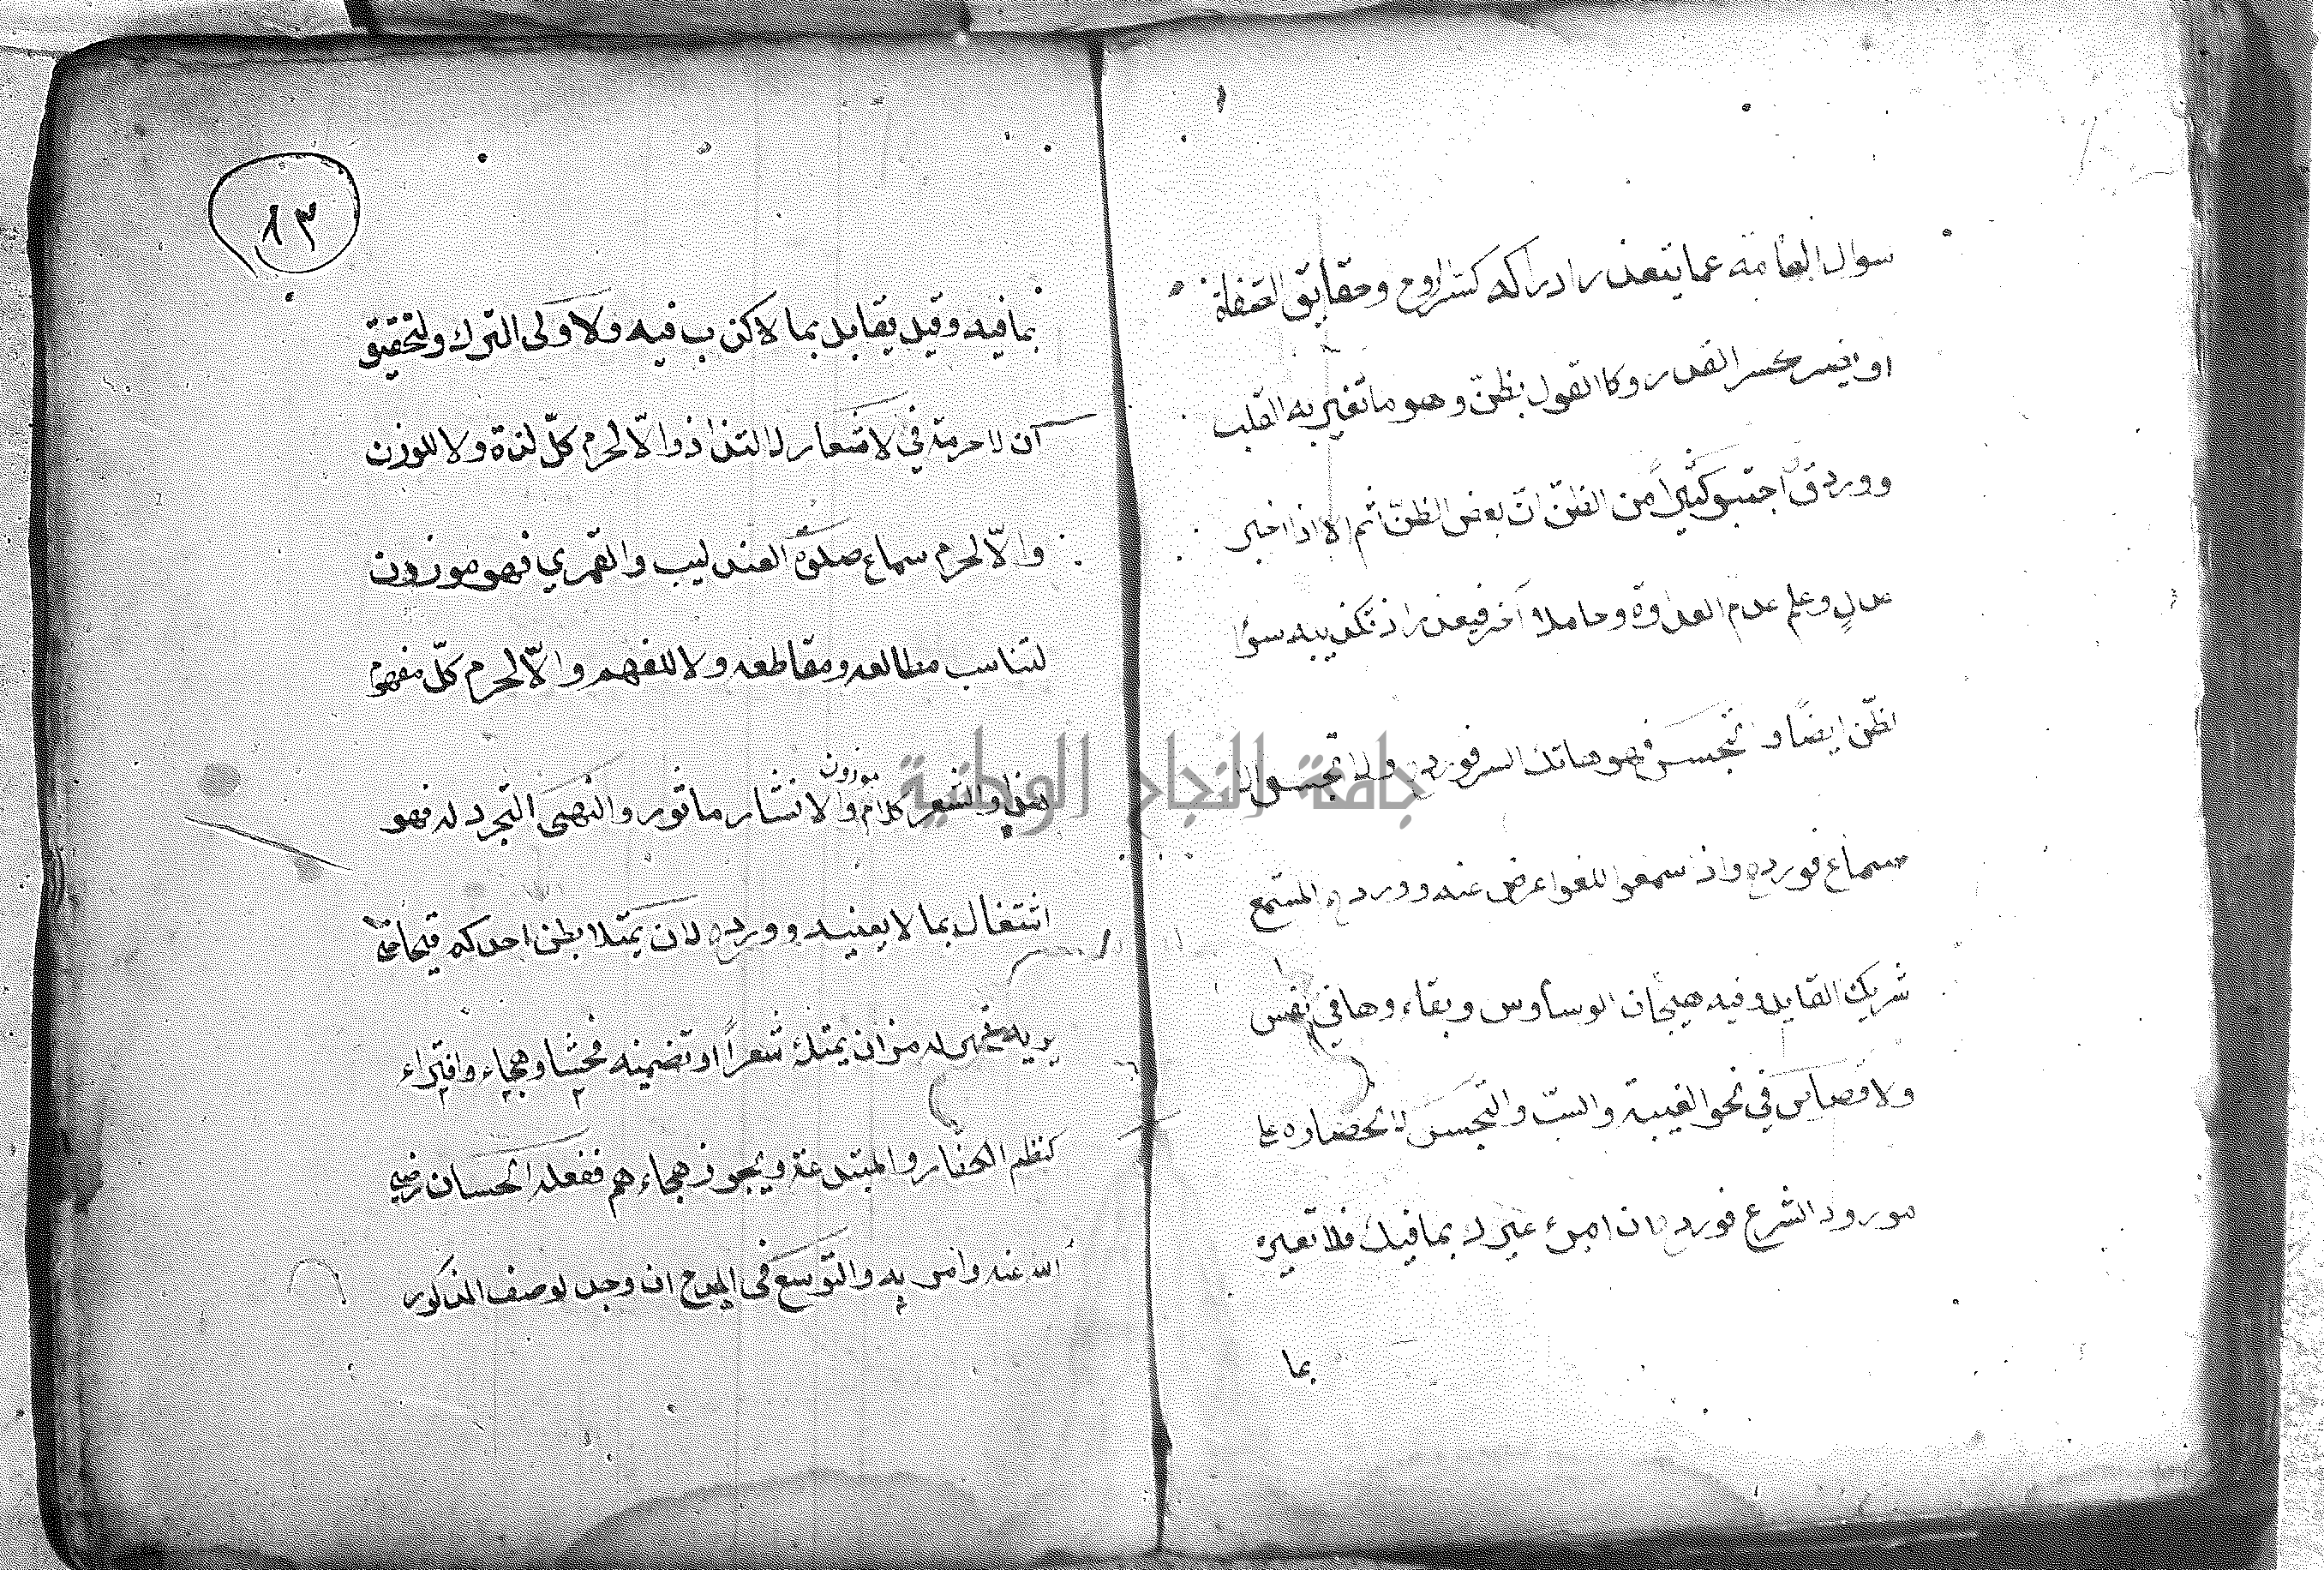 سوال العامة عما يتعذر ادراكه كسر الروح وحقايق الصفاة
او افيسر كسر القدر وكا القول بظنّ وهو ما تغير به القلب
وورد ق اجتنبو كثيراً من الظنّ انّ بعض الظنّ اثم الا اذا اخبر
عدلٍ وعلم عدم العداوة وحاملا آخر فيعذر اذ تكذيبه سوٓا
لظنّ ايضًا و تجسس فهو هاتك الستر فورد ولا تجسسوا
سماع فورد واذا سمعوا اللغو اعرض عنه وورد المستمع
شريك القايل وفيه هيجان الوساوس وبقاء وها في نفس
ولا قصاص في نحو الغيبة والسبّ والتجسس لانحصاره على
مورود الشرع فورد ان امرء عيرك بما فيك فلا تعيره
بما
١٣
بما فيه وقيل يقابل بما لا كذب فيه ولاولى الترك ولتحقيق
آن لا حرمة في لاشعار لا التذاذ والّا لحرم كلّ لذة ولا للوزن
والّا لحرم سماع صلوة العندليب والقمري فهو موزون
لتناسب مطالعه ومقاطعه ولا للفهم والّا لحرم كلّ مفهوم
موزون
لغيٍ والشعر كلام والانشار ماثور والنهى التجرد له فهو
اشتغال بما لا يعنيه وورد لان يمتلا بطن احدكم قيحا حتى
يريه خير له من ان يمتلئ شعراً او تضمينه فحشا وهجاء وافتراء
كنظم الكفار والمبتدعة ويجوز هجاءهم ففعله الحسان رضي
الله عنه وامر به والتوسع في المدح ان وجد لوصف المذكور
جامعة النجاح الوطنية